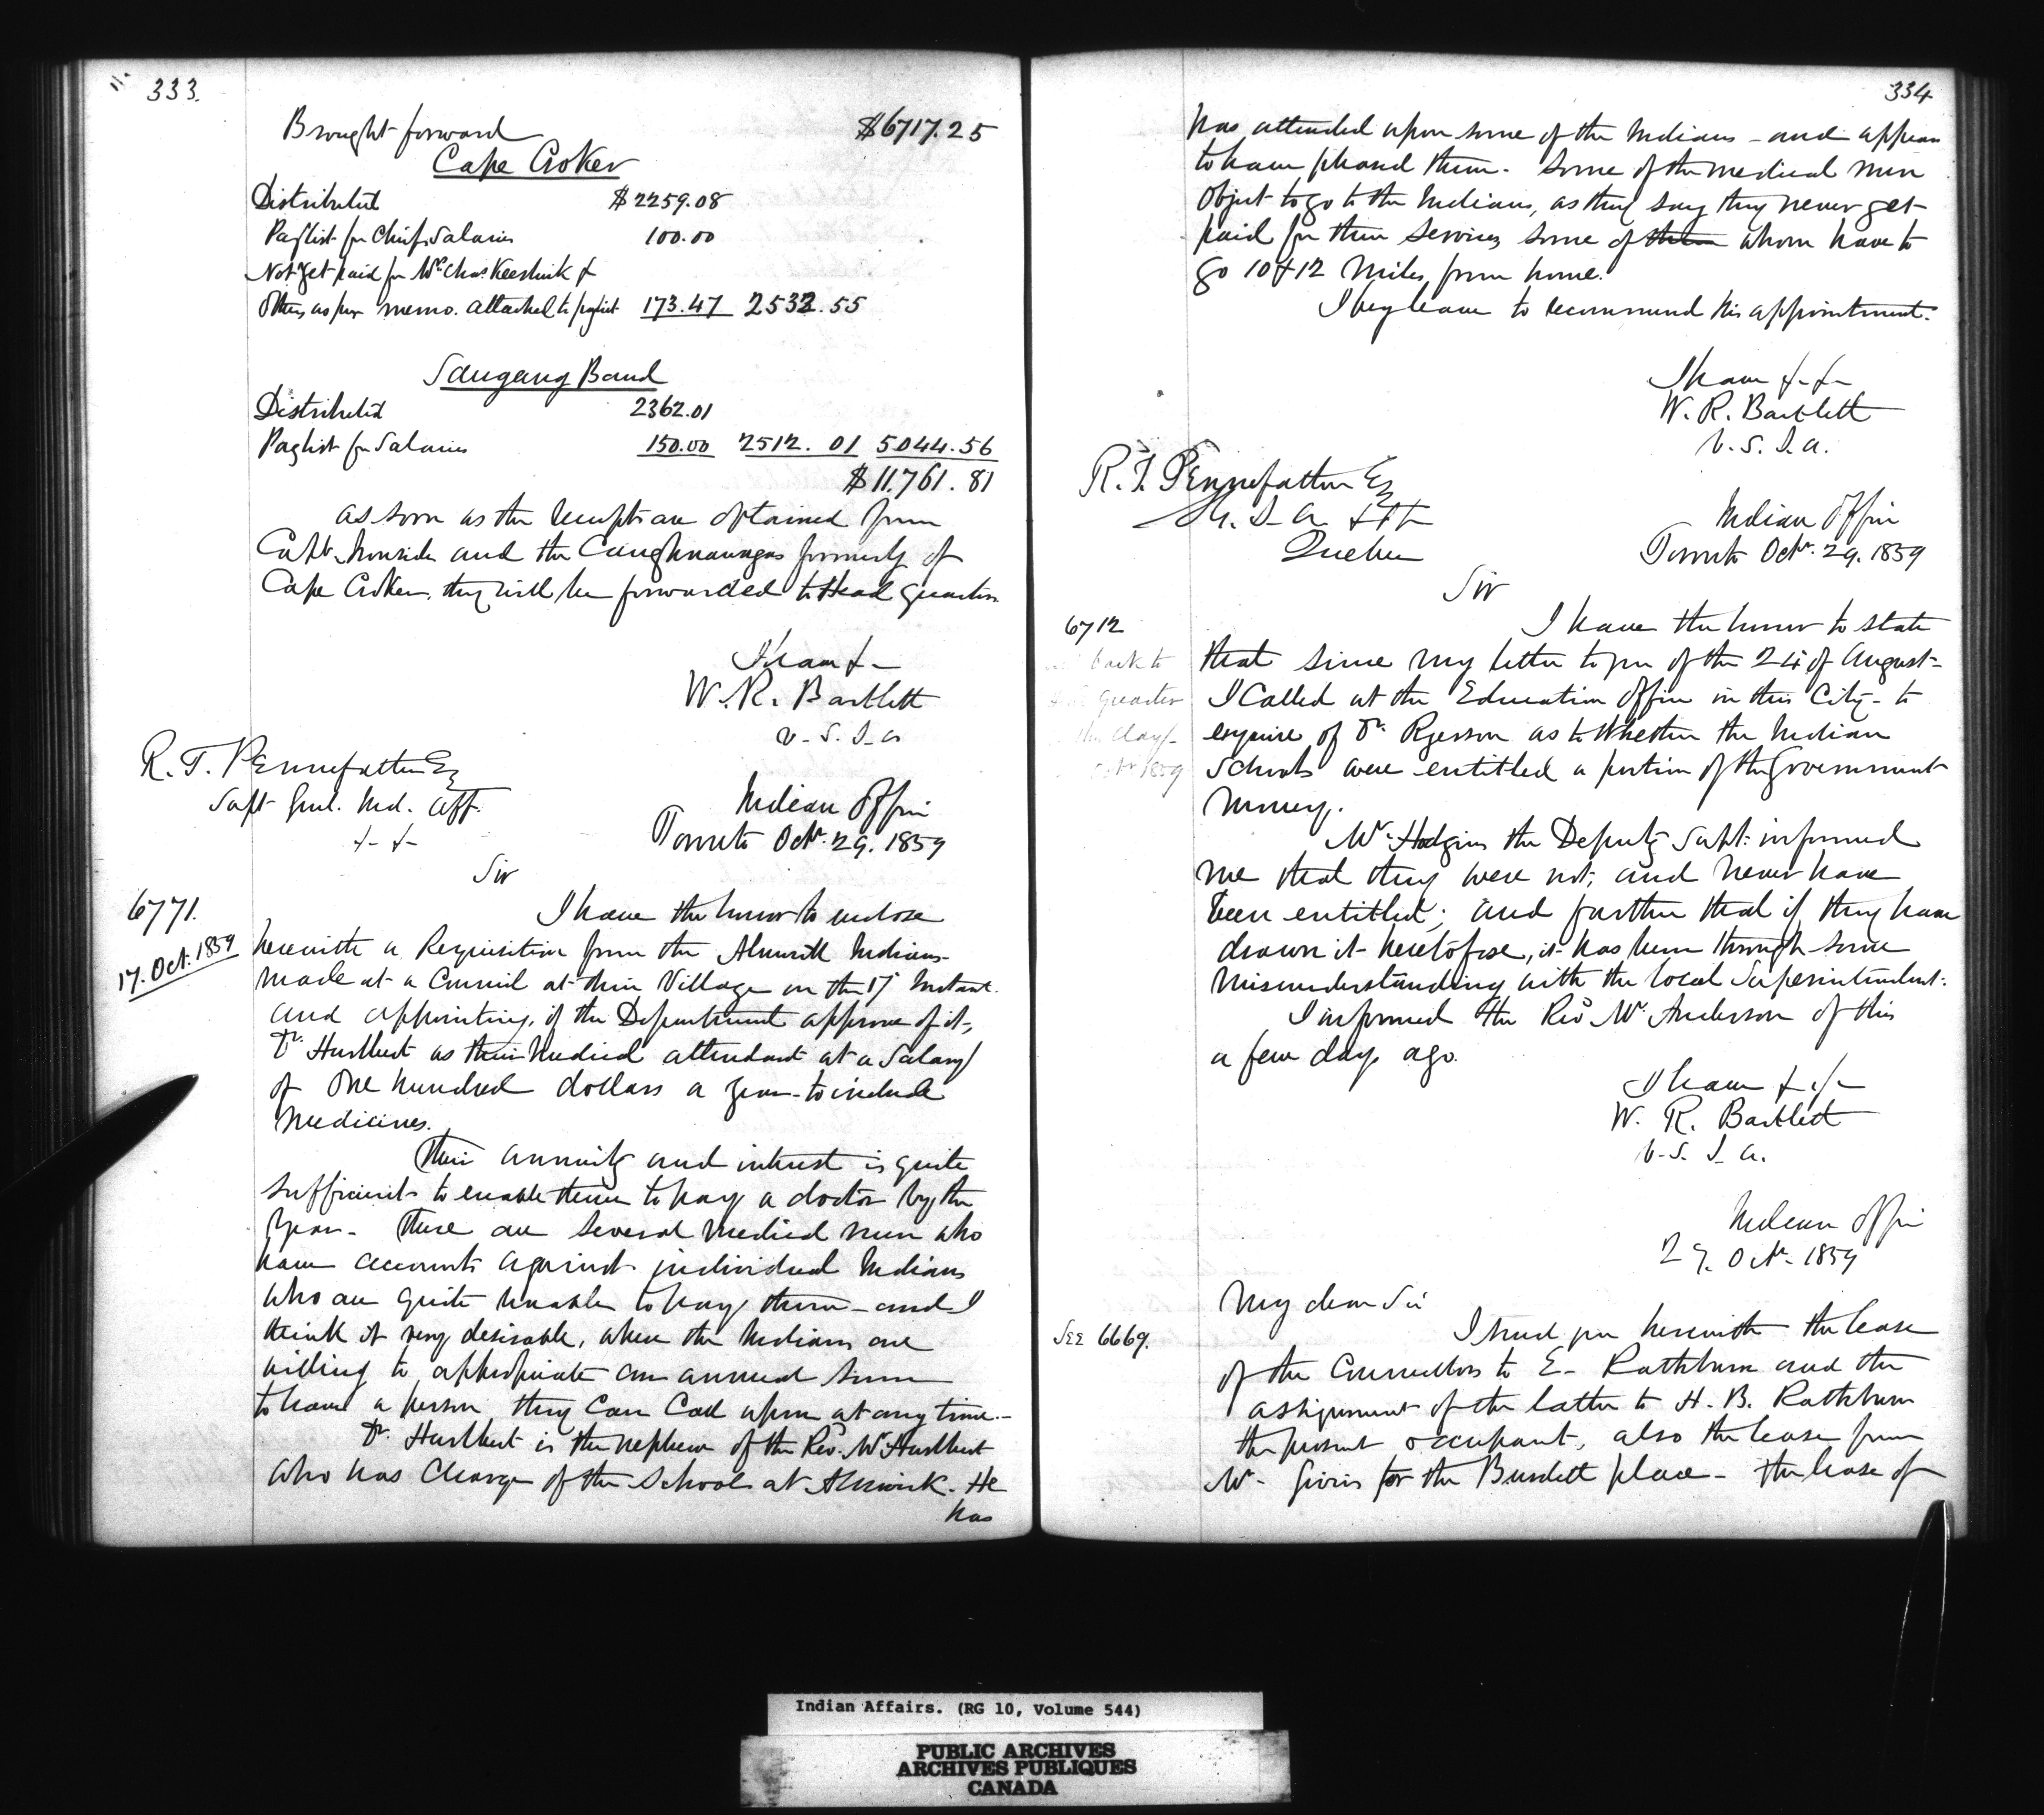 333.
Brought forward $6717.25
Cape Croker
Distributed $2259.08
Paylist for Chiefs Salaries 100.00
Not yet paid for Wm Chas Keeshick &
others as per memo. attached to paylist 173.47 2532.55
Saugeeng Band
Distributed 2362.01
Paylist for Salaries 150.00 2512.01 5044.56
$11.761.81
As soon as the receipts are obtained from
Capt. Ironside and the Caughnawagas formerly of
Cape Croker, they will be forwarded to Head Quarters
I have &-
W. R. Bartlett
V-S. I-A
R. T. Pennefather Esq
Supt Genl. Ind. Aff.
&- &-
Indian Office
Toronto Octr. 29. 1859
Sir
6771.
17. Oct. 1859
I have the honor to enclose
herewith a Requisition from the Alnwick Indians
made at a Council at their Village on the 17th Instant
and appointing, if the Department approve of it,
Dr. Hurlburt as their Medical attendant at a Salary
of One hundred dollars a year - to include
Medicines.
Their annuity and interest is quite
sufficient to enable them to pay a doctor by the
year - There are several Medical men who
have accounts against individual Indians
who are quite unable to pay them - and I
think it very desirable, when the Indians are
willing to appropriate an annual sum
to have a person they can call upon at any time. -
Dr. Hurlburt is the nephew of the Revd. Mr Hurlburt
who has charge of the School at Alnwick. He
has
334
has attended upon some of the Indians - and appears
to have pleased them. Some of the medical men
object to go to the Indians, as they say they never get
paid for their services some of them whom have to
go 10 & 12 miles from home.
I beg leave to recommend his appointment.
I have &-&-
W. R. Bartlett
V. S. I. A.
R. T. Pennefather Esq
S. G. I. A &&&
Quebec
Indian Office
Toronto Octr. 29. 1859
Sir
6712
back to
quarter
day
Octr 1859
I have the honor to state
that since my letter to you of the 24th of August -
I called at the Education Office in this City - to
enquire of Dr. Ryerson as to whether the Indian
Schools were entitled a portion of the Government
money.
Mr Hodgins the Deputy Supt: informed
me that they were not; and never have
been entitled; and further that if they have
drawn it heretofore, it has been through some
misunderstanding with the local Superintendent.
I informed the Revd Mr. Anderson of this
a few days ago.
I have &-&-
W. R. Bartlett
V-S. I-A.
Indian Office
29. Octr. 1859
My dear Sir
SEE 6669.
I send you herewith the lease
of the Councillors to E. Rathburn and the
assignment of the latter to H. B. Rathburn
the present occupant, also the lease from
Mr. Givins for the Burdett place - the lease of
Indian Affairs. (RG 10, Volume 544)
PUBLIC ARCHIVES
ARCHIVES PUBLIQUES
CANADA